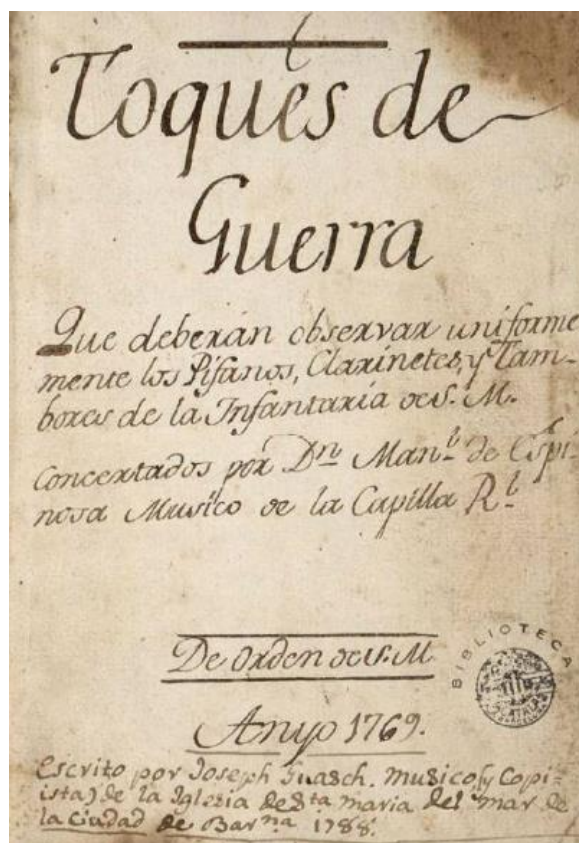 Toques de
Guerra
Que deberán observar uniforme
mente los Pífanos, Clarinetes, y Tam-
bores de la Infantaria de S. M.
concertados por Dn Manl de Espi-
nosa Musico de la Capilla Rl
De Orden de S. M.
Anyo 1769.
Escrito por Joseph Guasch. musico (y Copi=
ista) de la Iglesia de Sta maria del mar de
la ciudad de Barna 1788.
BIBLIOTECA